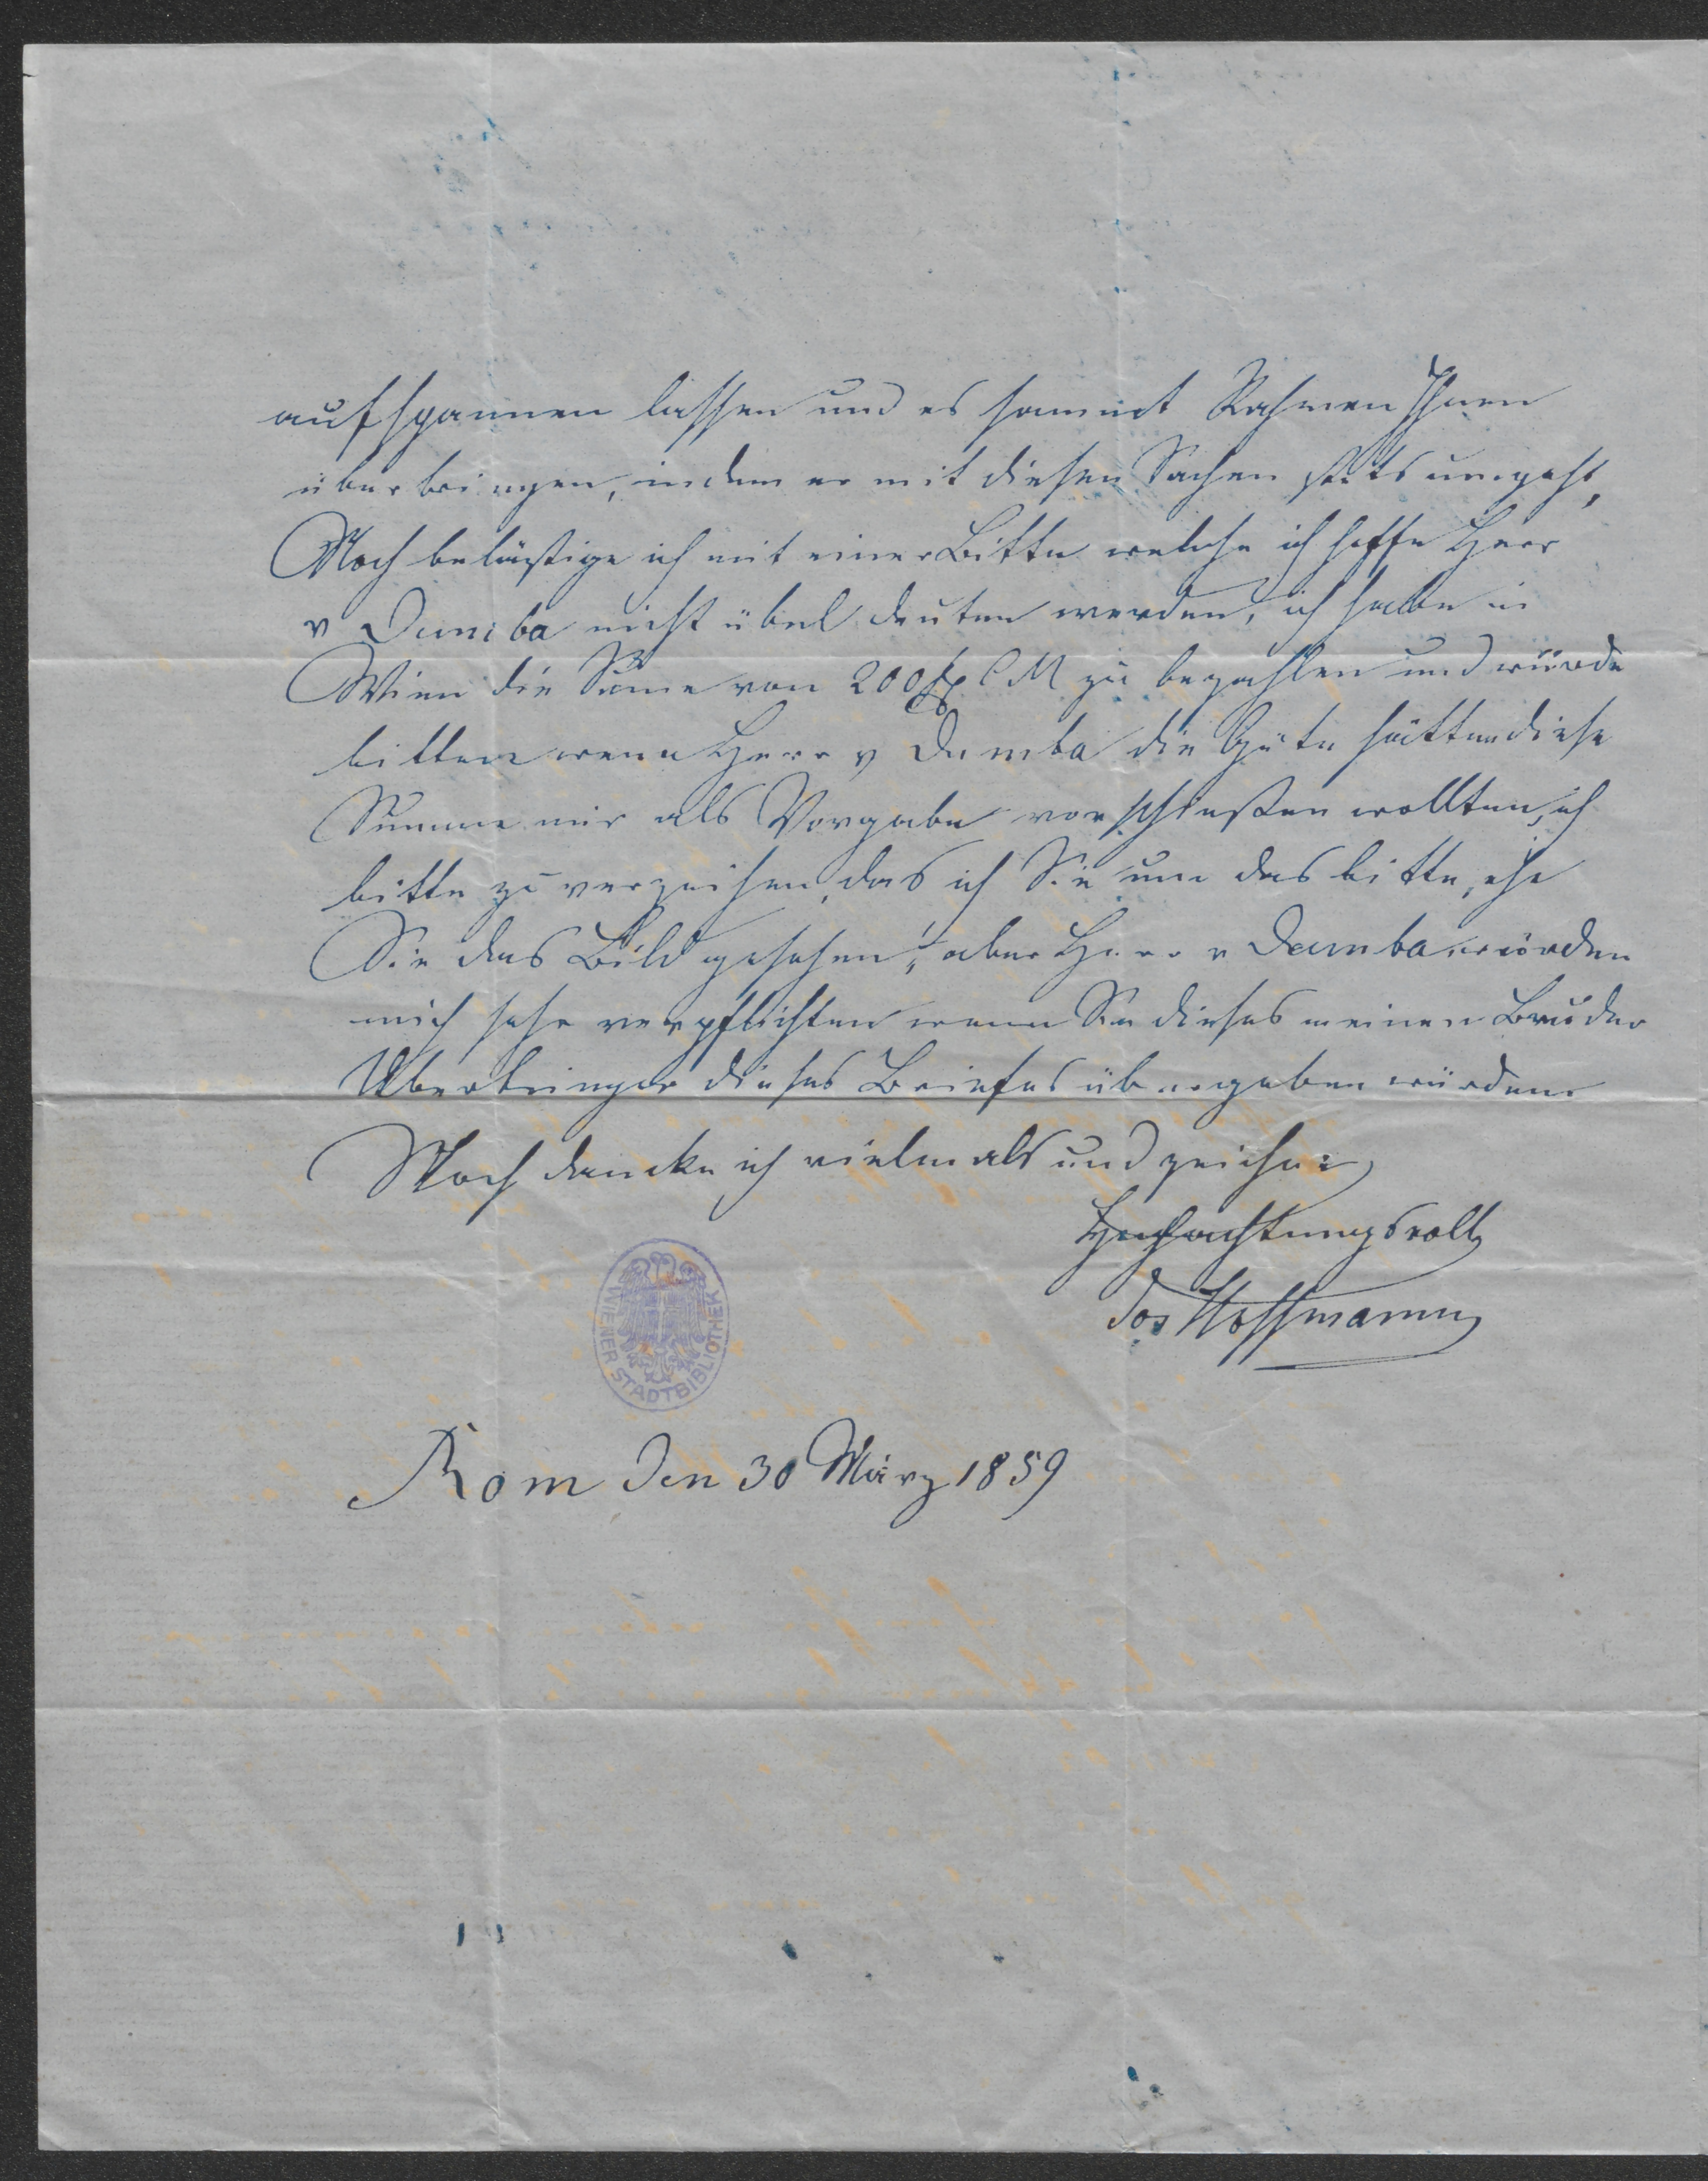 aufspannen lassen und es sammt Rahmen Ihnen
überbringen, indem er mit diesen Sachen stets umgeht,
Noch belästige ich mit einer Bitte welche ich hoffe Herr
v Dumba nicht übel deuten werden, ich habe in
Wien die Sume von 200 fl CM zu bezahlen und würde
bitten wenn Herr v Dumba die Güte hätten diese
Summe mir als Vorgabe vorschießen wollten, ich
bitte zu verzeihen, das ich Sie um das bitte, ehe
Sie das Bild gesehen, aber Herr v Dumba würden
mich sehr verpflichten wenn Sie dieses meinen Bruder
Überbringer dieses Briefes übergeben würden
Noch dancke ich vielmals und zeichne
Hochachtungsvoll
Jos Hoffmann
WIENER STADTBIBLIOTHEK
Rom den 30 März 1859